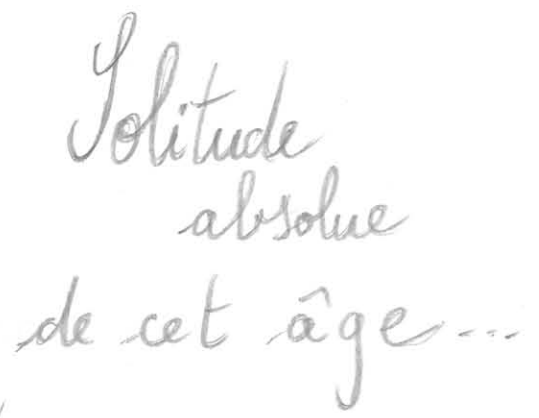 Solitude
absolue
de cet âge...